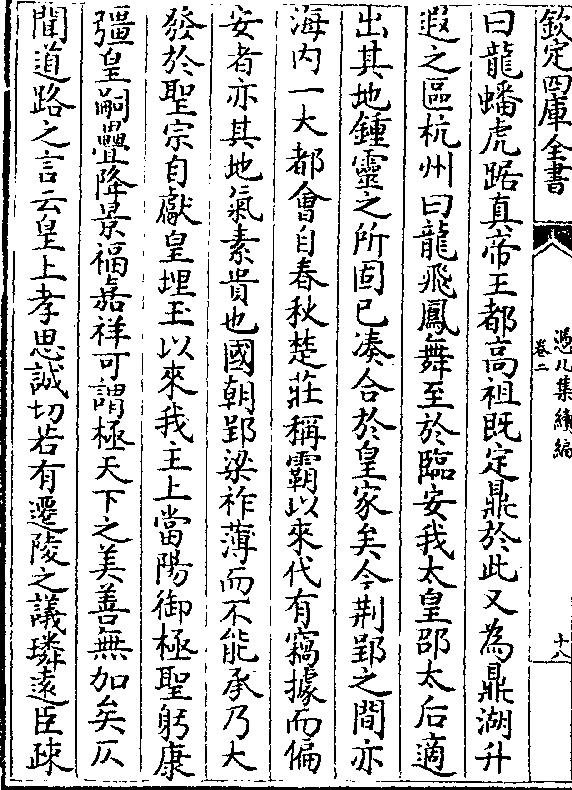 欽定四庫全書
憑几集續編
卷二
十八
曰龍蟠虎踞真帝王都高祖既定鼎於此又為鼎湖升
遐之區杭州曰龍飛鳳舞至於臨安我太皇邵太后適
出其地鍾靈之所固已湊合於皇家矣今荆郢之間亦
海内一大都會自春秋楚莊稱霸以來代有竊據而偏
安者亦其地氣素貴也國朝郢梁祚薄而不能承乃大
發於聖宗自獻皇埋玉以來我主上當陽御極聖躬康
彊皇嗣疊降景福嘉祥可謂極天下之美善無加矣仄
聞道路之言云皇上孝思誠切若有遷陵之議璘遠臣疎